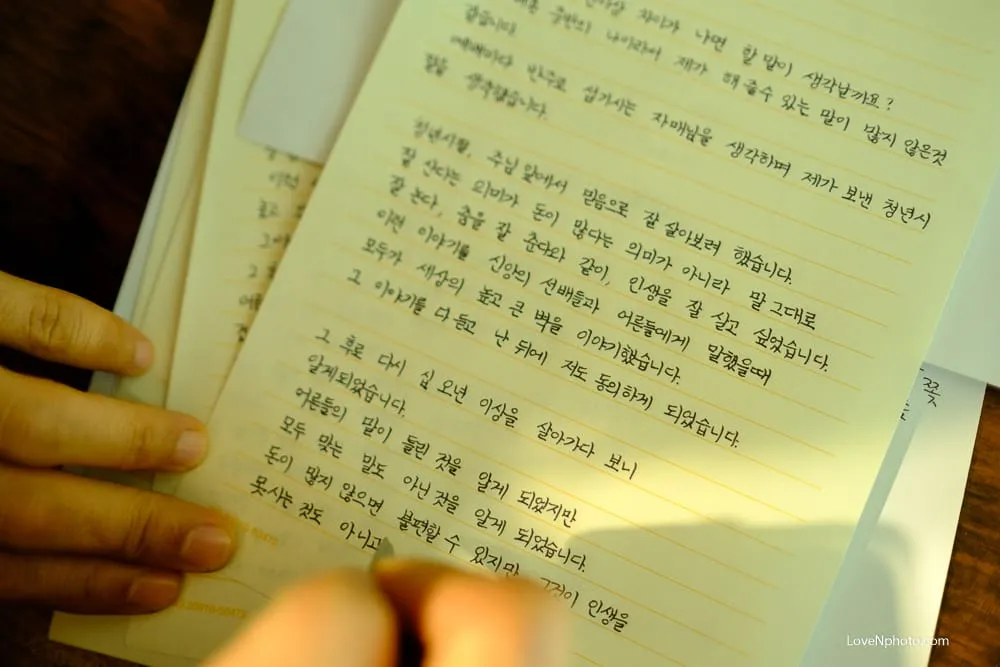 차이가 나면 할 말이 생각날까요?
나이라서 제가 해 줄수 있는 말이 많지 않은것
같습니다
반주로 섬기시는 자매님을 생각하며 제가 보낸 청년시
절을 생각했습니다.
청년시절, 주님 앞에서 믿음으로 잘 살아보려 했습니다.
잘 산다는 의미가 돈이 많다는 의미가 아니라 말 그대로
잘 논다, 춤을 잘 춘다와 같이, 인생을 잘 살고 싶었습니다.
이런 이야기를 신앙의 선배들과 어른들에게 말했을때
모두가 세상의 높고 큰 벽을 이야기했습니다.
그 이야기를 다 듣고 난 뒤에 저도 동의하게 되었습니다.
그 후로 다시 십 오년 이상을 살아가다 보니
알게되었습니다.
어른들의 말이 틀린 것을 알게 되었지만
모두 맞는 말도 아닌 것을 알게 되었습니다.
돈이 많지 않으면 불편할 수 있지만 그것이 인생을
못사는 것도 아니고
LoveNphoto.com